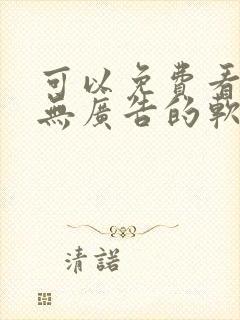 可以免費看
無廣告的軟
清諾